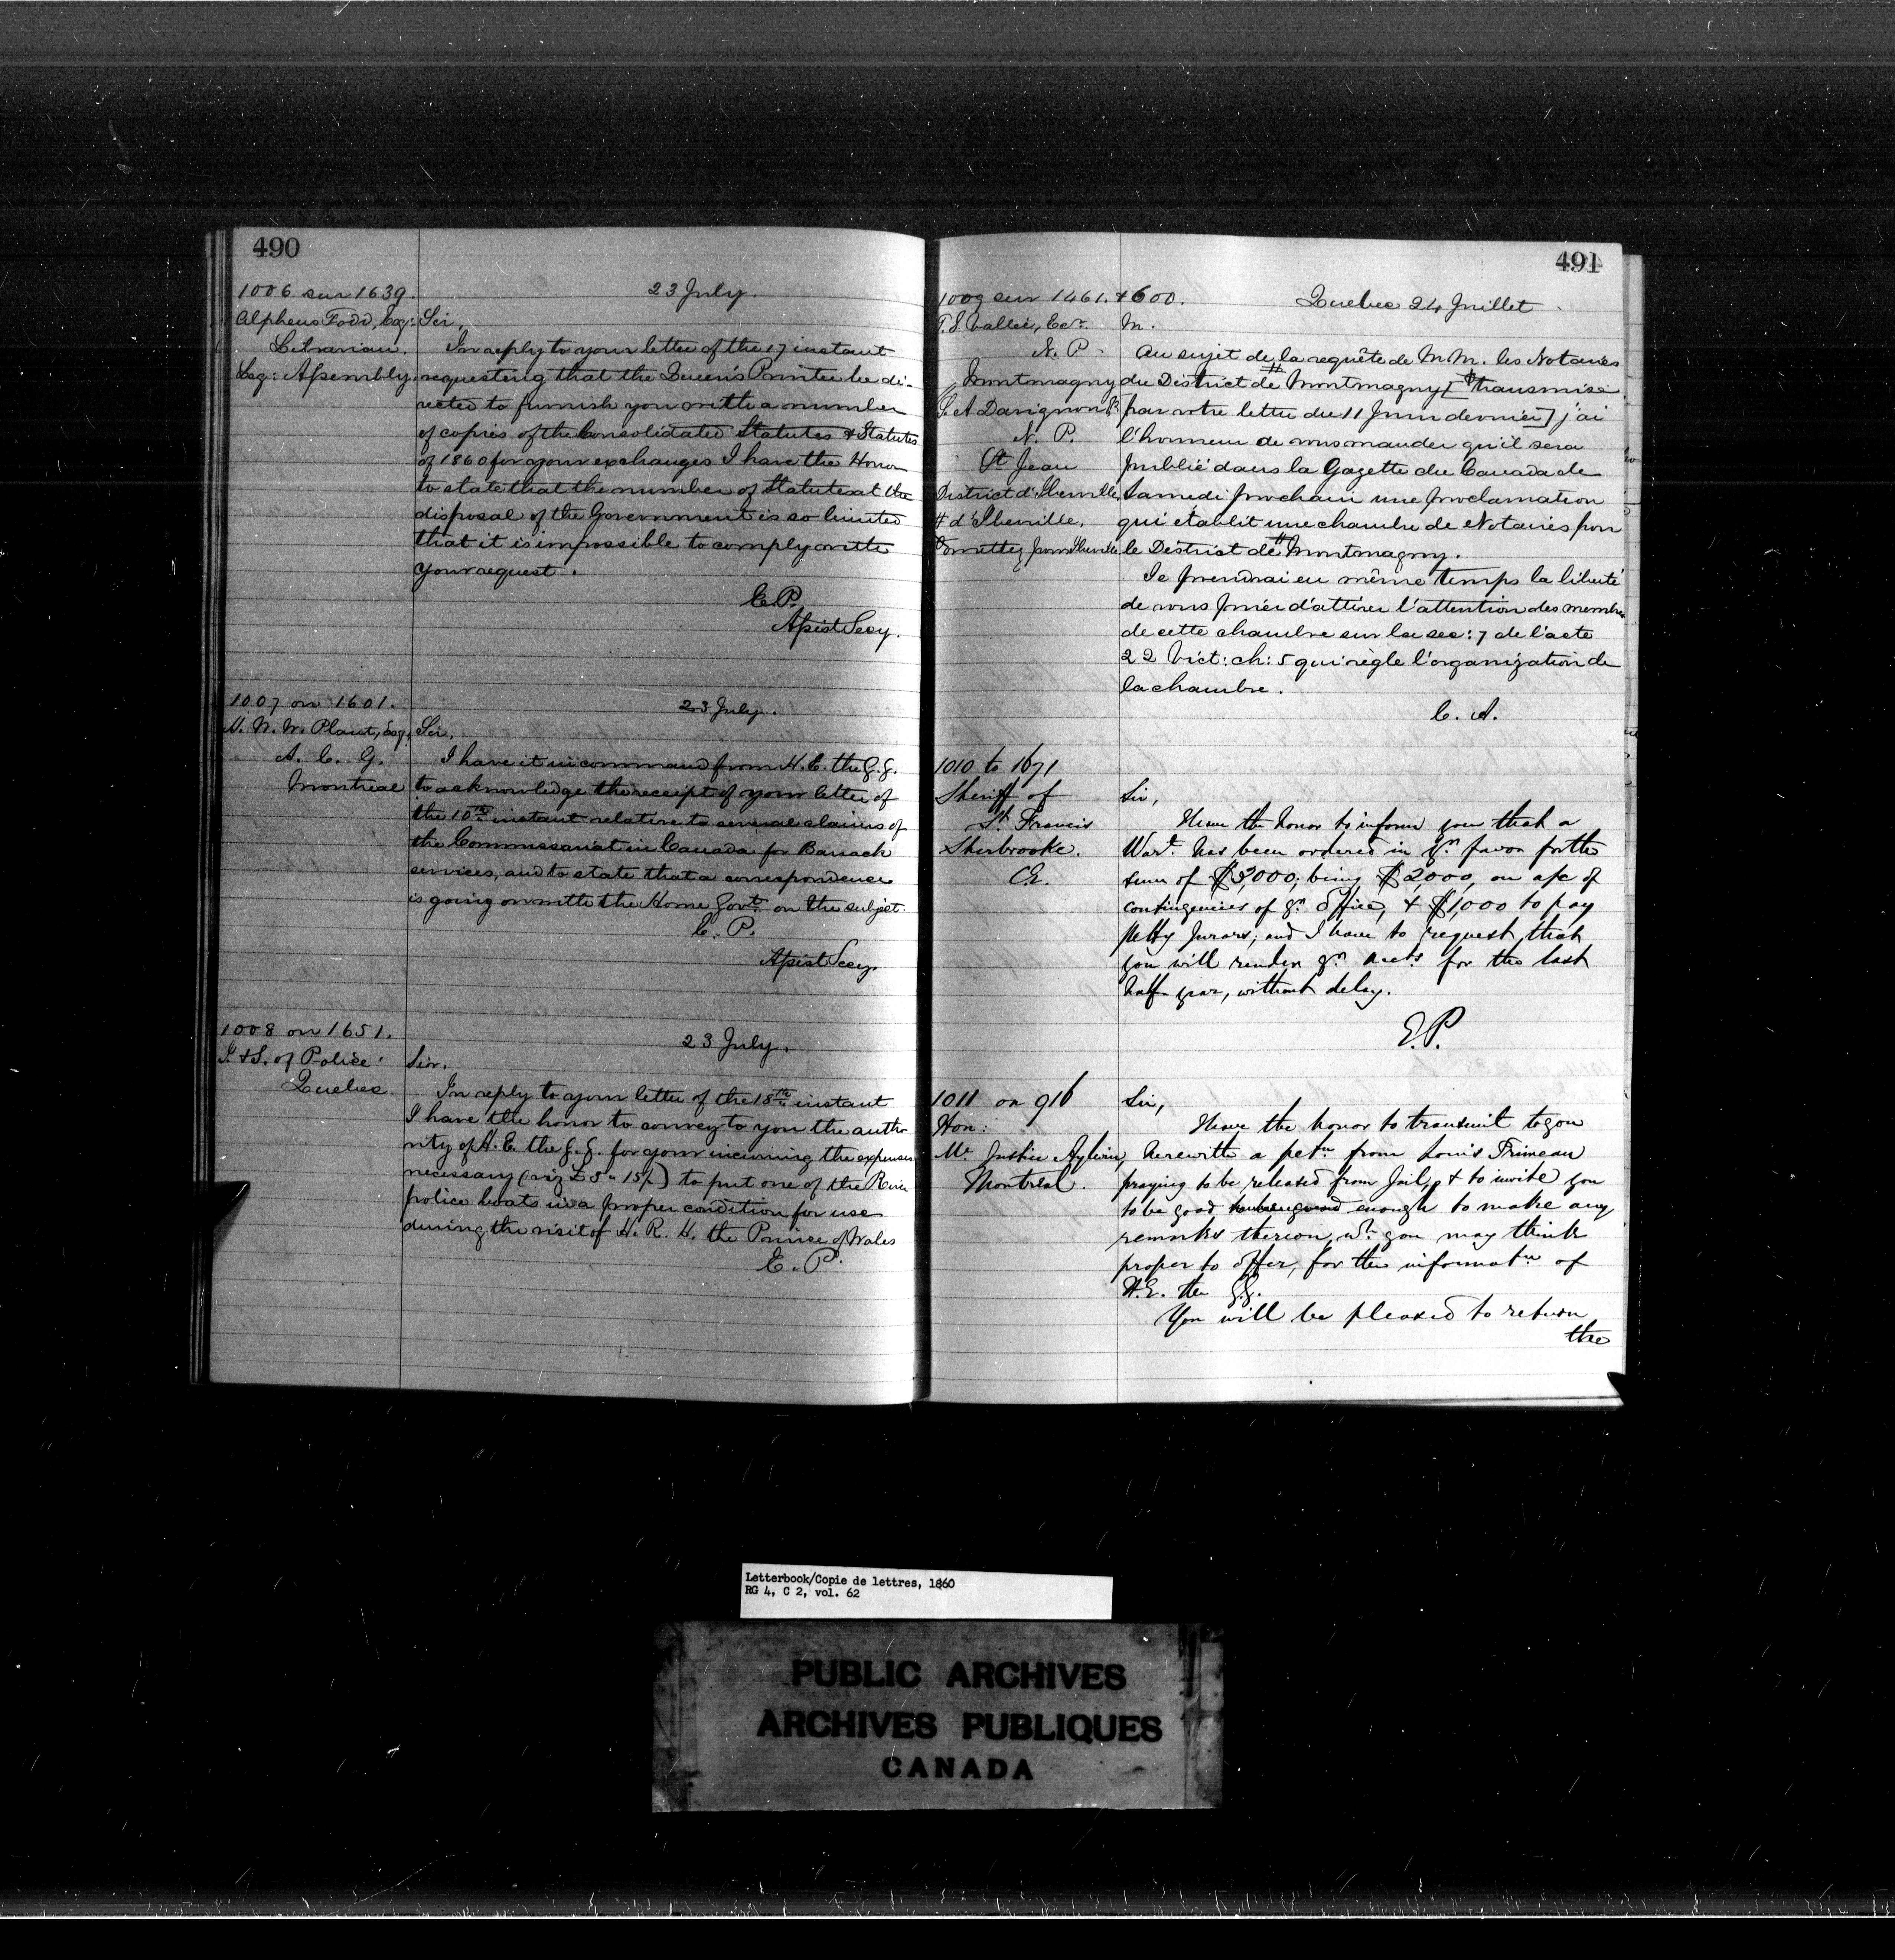 490
1006 sur 1639.
23 July.
Alpheus Todd, Esq:
Librarian.
Leg: Assembly.
Sir,
In reply to your letter of the 17 instant
requesting that the Queen's Printer be di-
rected to furnish you with a number
of copies of the Consolidated Statutes & Statutes
of 1860 for your exchanges I have the Honor
to state that the number of Statutes at the
disposal of the Government is so limited
that it is impossible to comply with
your request.
E. P.
Assist Secy.
1007 on 1601.
23 July.
W. Plant, Esq,
A. C. G.
Montreal
Sir,
I have it in command from H. E. the G. G.
to acknowledge the receipt of your letter of
the 10th instant relative to several claims of
the Commissariat in Canada for Barrack
services, and to state that a correspondence
is going on with the Home Govt. on the subject.
E. P.
Assist Secy.
1008 on 1651.
23 July.
I. & S. of Police
Quebec
Sir.
In reply to your letter of the 18th instant
I have the honor to convey to you the autho
rity of H. E. the G. G. for your incurring the expenses
necessary (viz £5 " 15/.) to put one of the River
police boats in a proper condition for use
during the visit of H. R. H. the Prince of Wales
E. P.
491
1009 sur 1461. & 600.
Quebec 24 Juillet
T. S. Vallée, Ecr.
N. P.
Montmagny
Davignon
N. P.
St Jean
District d'Iberville
# d'Iberville.
pour Iberville
M.
Au sujet de la requête de M M. les Notaires
du District de # Montmagny [ transmise
par votre lettre du 11 Juin dernier ] j'ai
l'honneur de vous mander qu'il sera
publié dans la Gazette du Canada de
Samedi prochain une proclamation
qui établit une chambre de Notaires pour
le District de # Montmagny.
Je prendrai en même temps la liberté
de vous prier d'attirer l'attention des membres
de cette chambre sur la sec: 7 de l'acte
22 Vict: ch: 5 qui règle l'organization de
la chambre.
C. A.
1010 to 1671
Sheriff of
St. Francis
Sherbrooke.
CE.
Sir,
I have the honor to inform you that a
Wart. has been ordered in yr. favor for the
sum of $3,000; being $2,000, on a/c of
contingencies of yr. Office, & $1,000 to pay
Petty Jurors; and I have to request that
you will render yr. accts. for the last
half year, without delay.
E. P.
1011 on 916
Hon:
Mr. Justice Aylwin,
Montreal.
Sir,
I have the honor to transmit to you
herewith a petn. from Louis Primeau
praying to be released from Jail, & to invite you
to be good enough to make any
remarks thereon, wh. you may think
proper to offer, for the informatn. of
H. E. the G. G.
You will be pleased to return
the
Letterbook/Copie de lettres, 1860
RG 4, C 2, vol. 62
PUBLIC ARCHIVES
ARCHIVES PUBLIQUES
CANADA